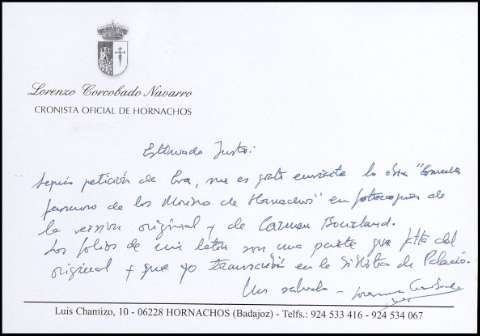 Lorenzo Corcobado Navarro
CRONISTA OFICIAL DE HORNACHOS
Estimado Justo:
Según petición de Eva, me es grato enviarte la obra "Consulta
famosa de los Moriscos de Hornachos" en fotocopias de
la versión original y de Carmen Bourland.
Los folios de mi letra son una parte que falta del
original y que yo transcribí en la Biblioteca de Palacio.
Un saludo
Luis Chamizo, 10 - 06228 HORNACHOS (Badajoz) - Telfs.: 924 533 416 - 924 534 067